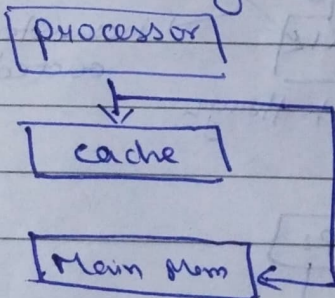 processor
cache
Main Mem